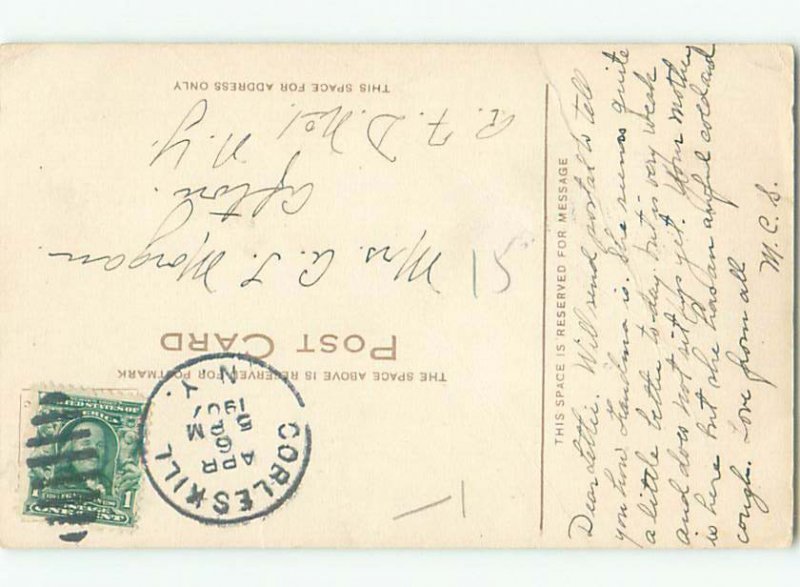 THE SPACE ABOVE IS RESERVED FOR POSTMARK
POST CARD
Mrs. A. L. Morgan.
Afton.
N. Y.
R. F. D. No 1.
THIS SPACE FOR ADDRESS ONLY
COBLESKILL
N. Y.
APR
6
5 PM
1907
UNITED STATES OF
AMERICA
1
1
ONE CENT
THIS SPACE IS RESERVED FOR MESSAGE
Dear Lettie. Will send postal to tell
you how Grandma is. She seems quite
a little better to-day. but is very weak
and does not sit up yet. Your mother
is here but she has an awful cold and
cough. Love from all
M. C. S.